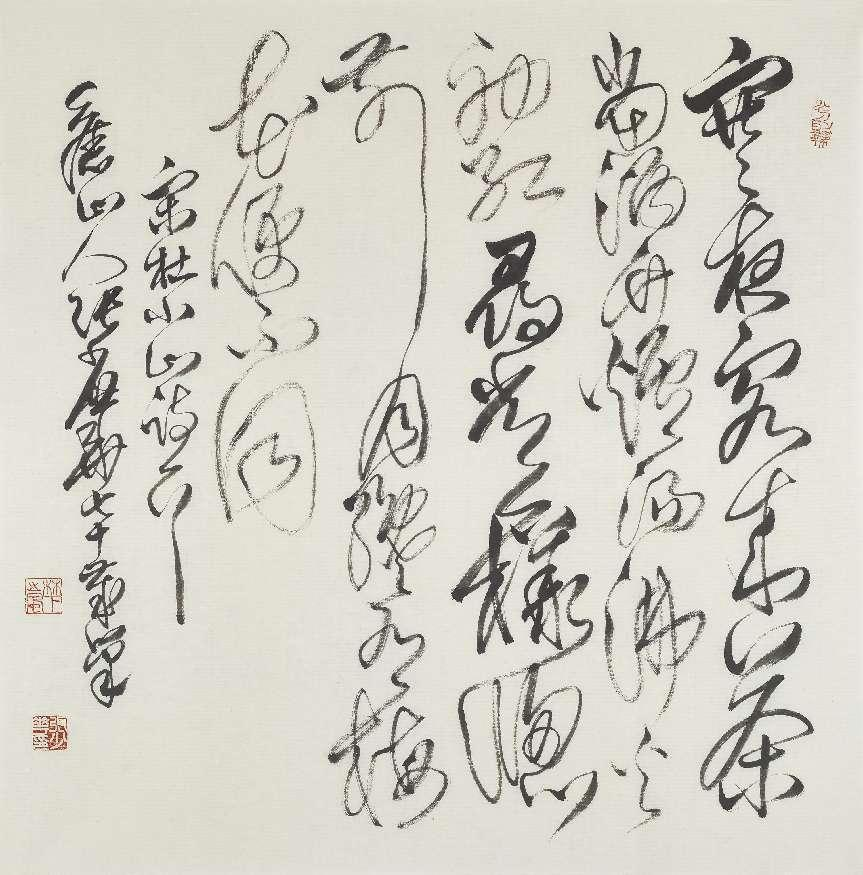 寒夜客來茶
當酒竹爐湯沸火
初紅尋常一樣窗
前月纔有梅
花便不同
宋杜小山詩
山人張少華七十歲筆